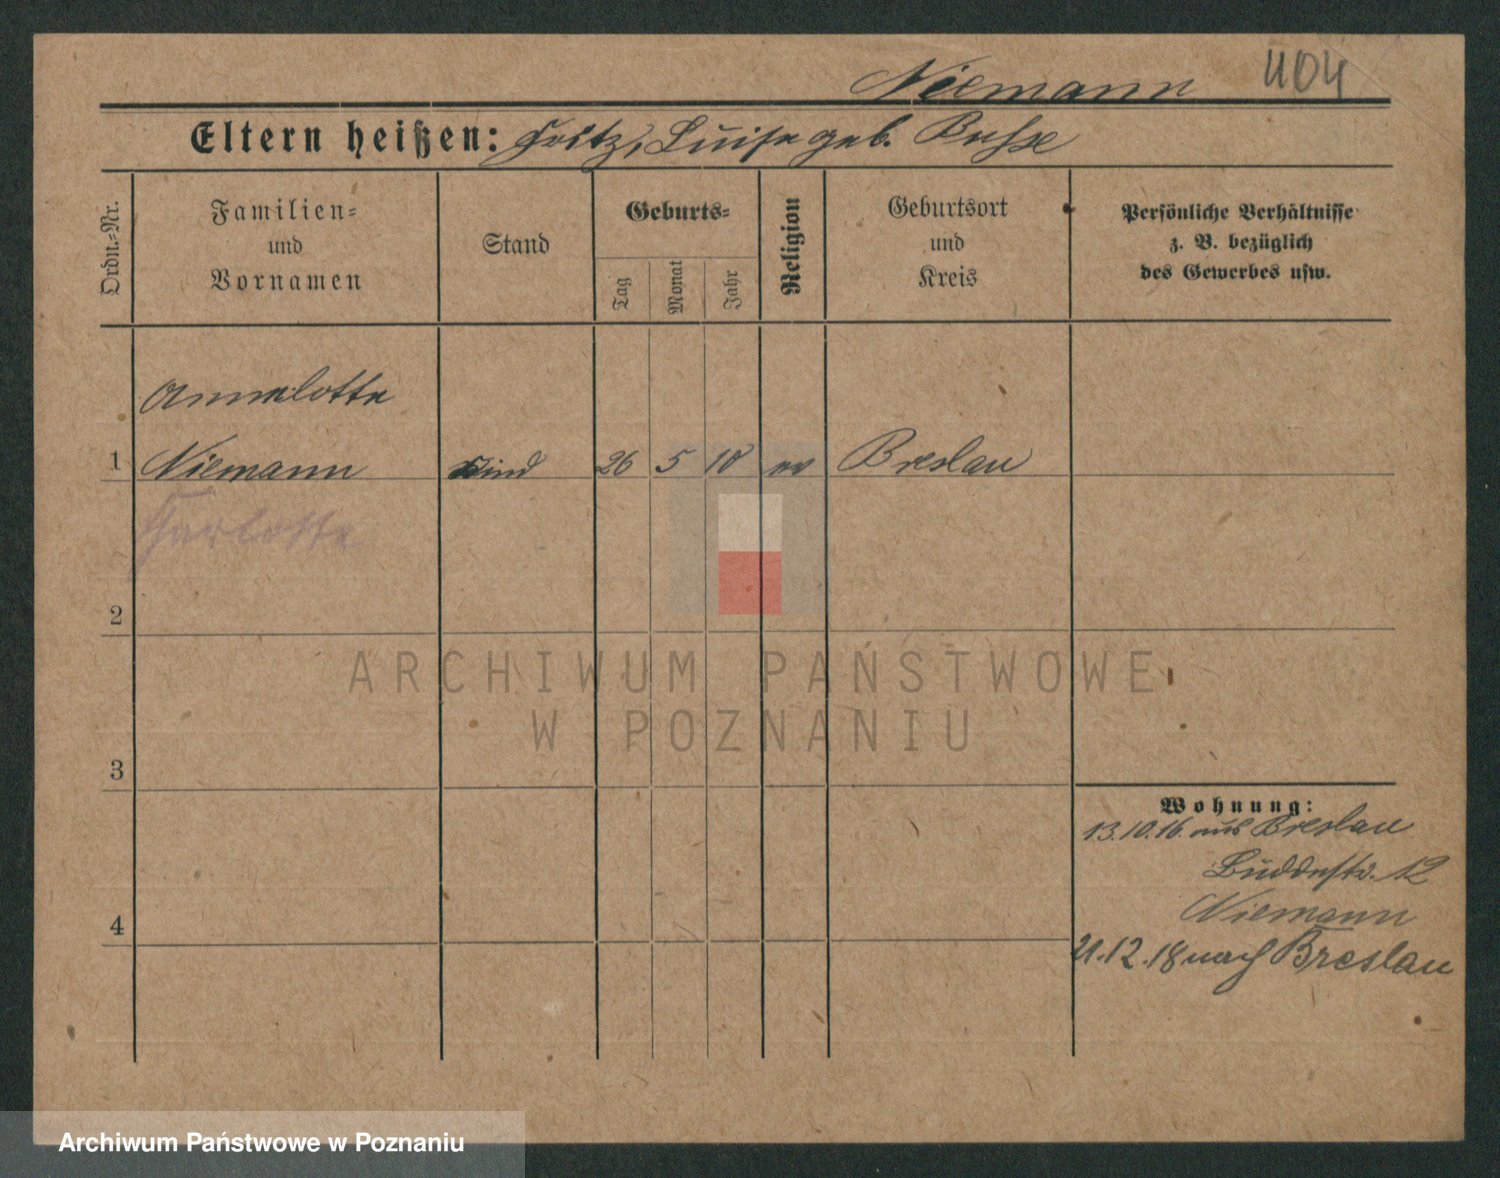 Niemann 404
Eltern heißen: Fritz, Luise geb. Busse
Ordn.-Nr.
Familien-
und
Vornamen
Stand
Geburts-
Tag
Monat
Jahr
Religion
Geburtsort
und
Kreis
Persönliche Verhältnisse
z. B. bezüglich
des Gewerbes usw.
Annelotte
1 Niemann Kind 26 5 10 ev Breslau
Charlotte
2
ARCHIWUM PAŃSTWOWE
W POZNANIU
3
Wohnung:
13.10.16. aus Breslau
12
Niemann
4
21.12.18 nach Breslau
Archiwum Państwowe w Poznaniu